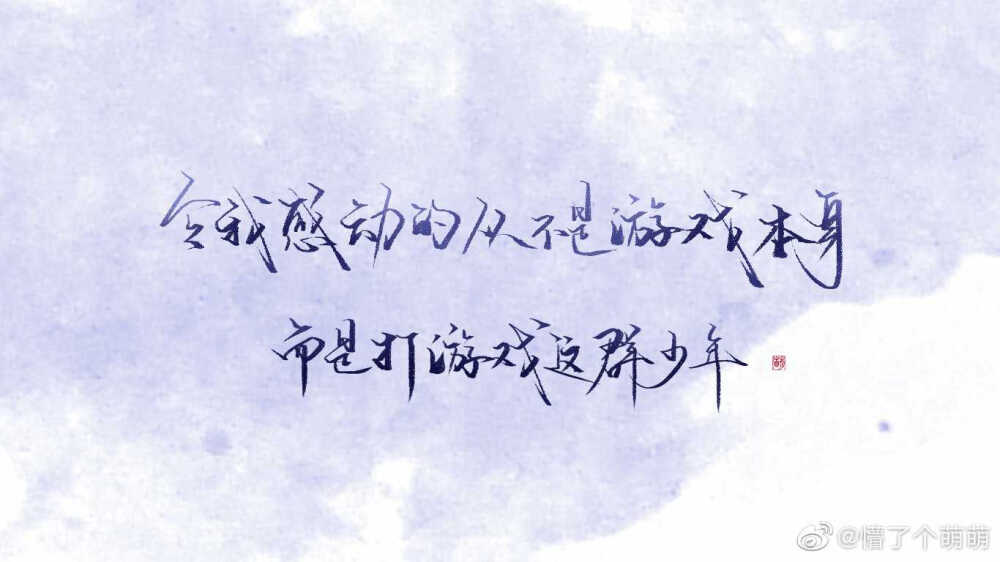 令我感动的从不是游戏本身
而是打游戏这群少年
@懵了个萌萌